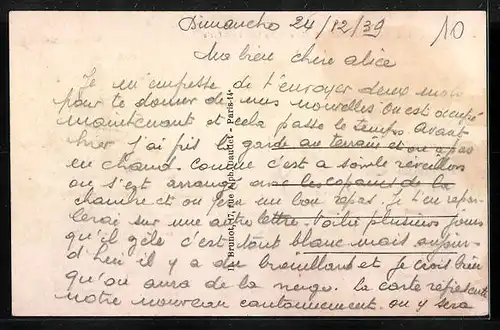 Dimanche 24/12/39
10
Ma bien chère alice
Je m'empresse de t'envoyer deux mots
pour te donner de mes nouvelles on est occupé
maintenant et cela passe le temps avant
hier j'ai pris la garde au terrain et on a pas
eu chaud. Comme c'est a soir le réveillon
on s'est arrangé avec les copains de la
chambre et on fera un bon repas. Je t'en repar
lerai sur une autre lettre. Voilà plusieurs jours
qu'il gèle c'est tout blanc mais aujour-
d'hui il y a du brouillard et je crois bien
qu'on aura de la neige. la carte représente
notre nouveau cantonnement. on y sera
Brunot, 97, rue Alph. Daudet - Paris-14e